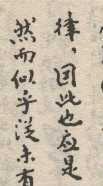 律，因此也应是
然而似乎从未有